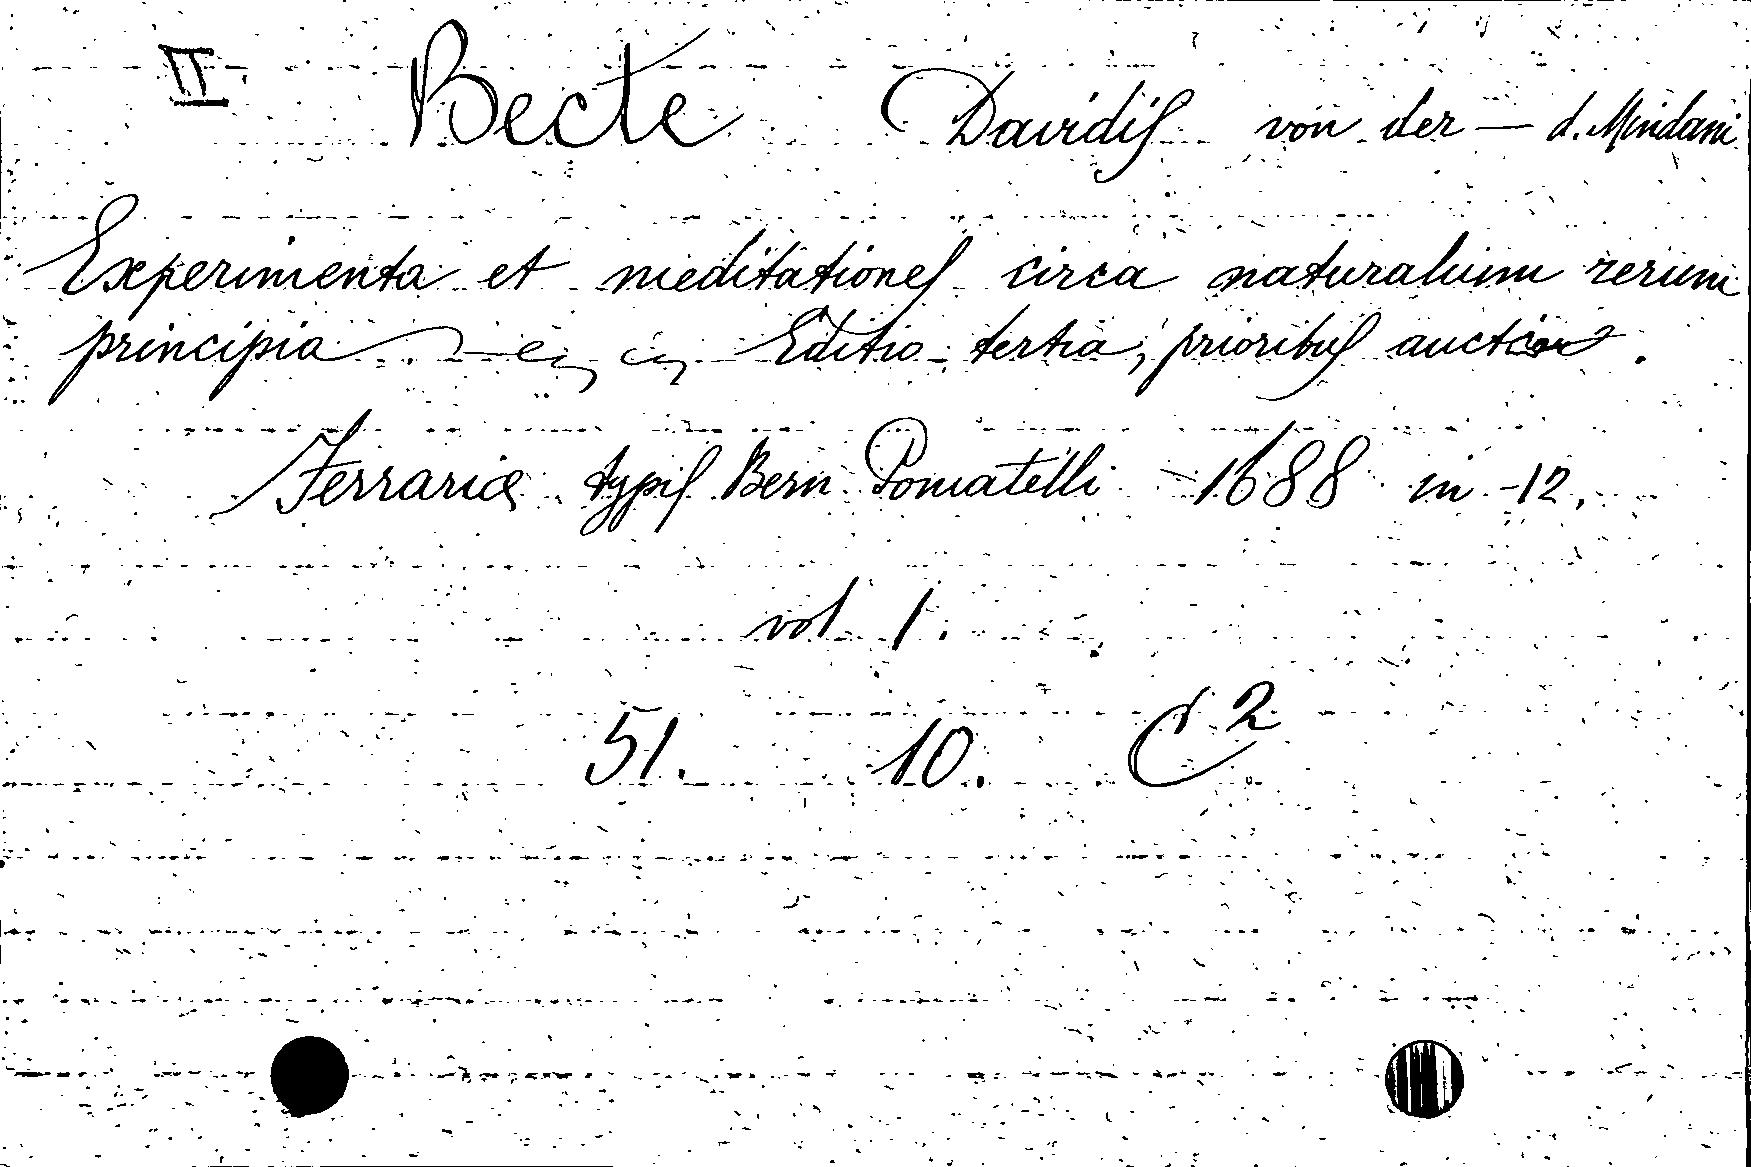 II Becte Davidis von der — d. Mindani
Experimenta et meditationes circa naturalium rerum
principia — Editio tertia, prioribus auctior.
Ferrariæ typis Bern Pomatelli 1688 in -12.
vol 1.
51. 10. C²